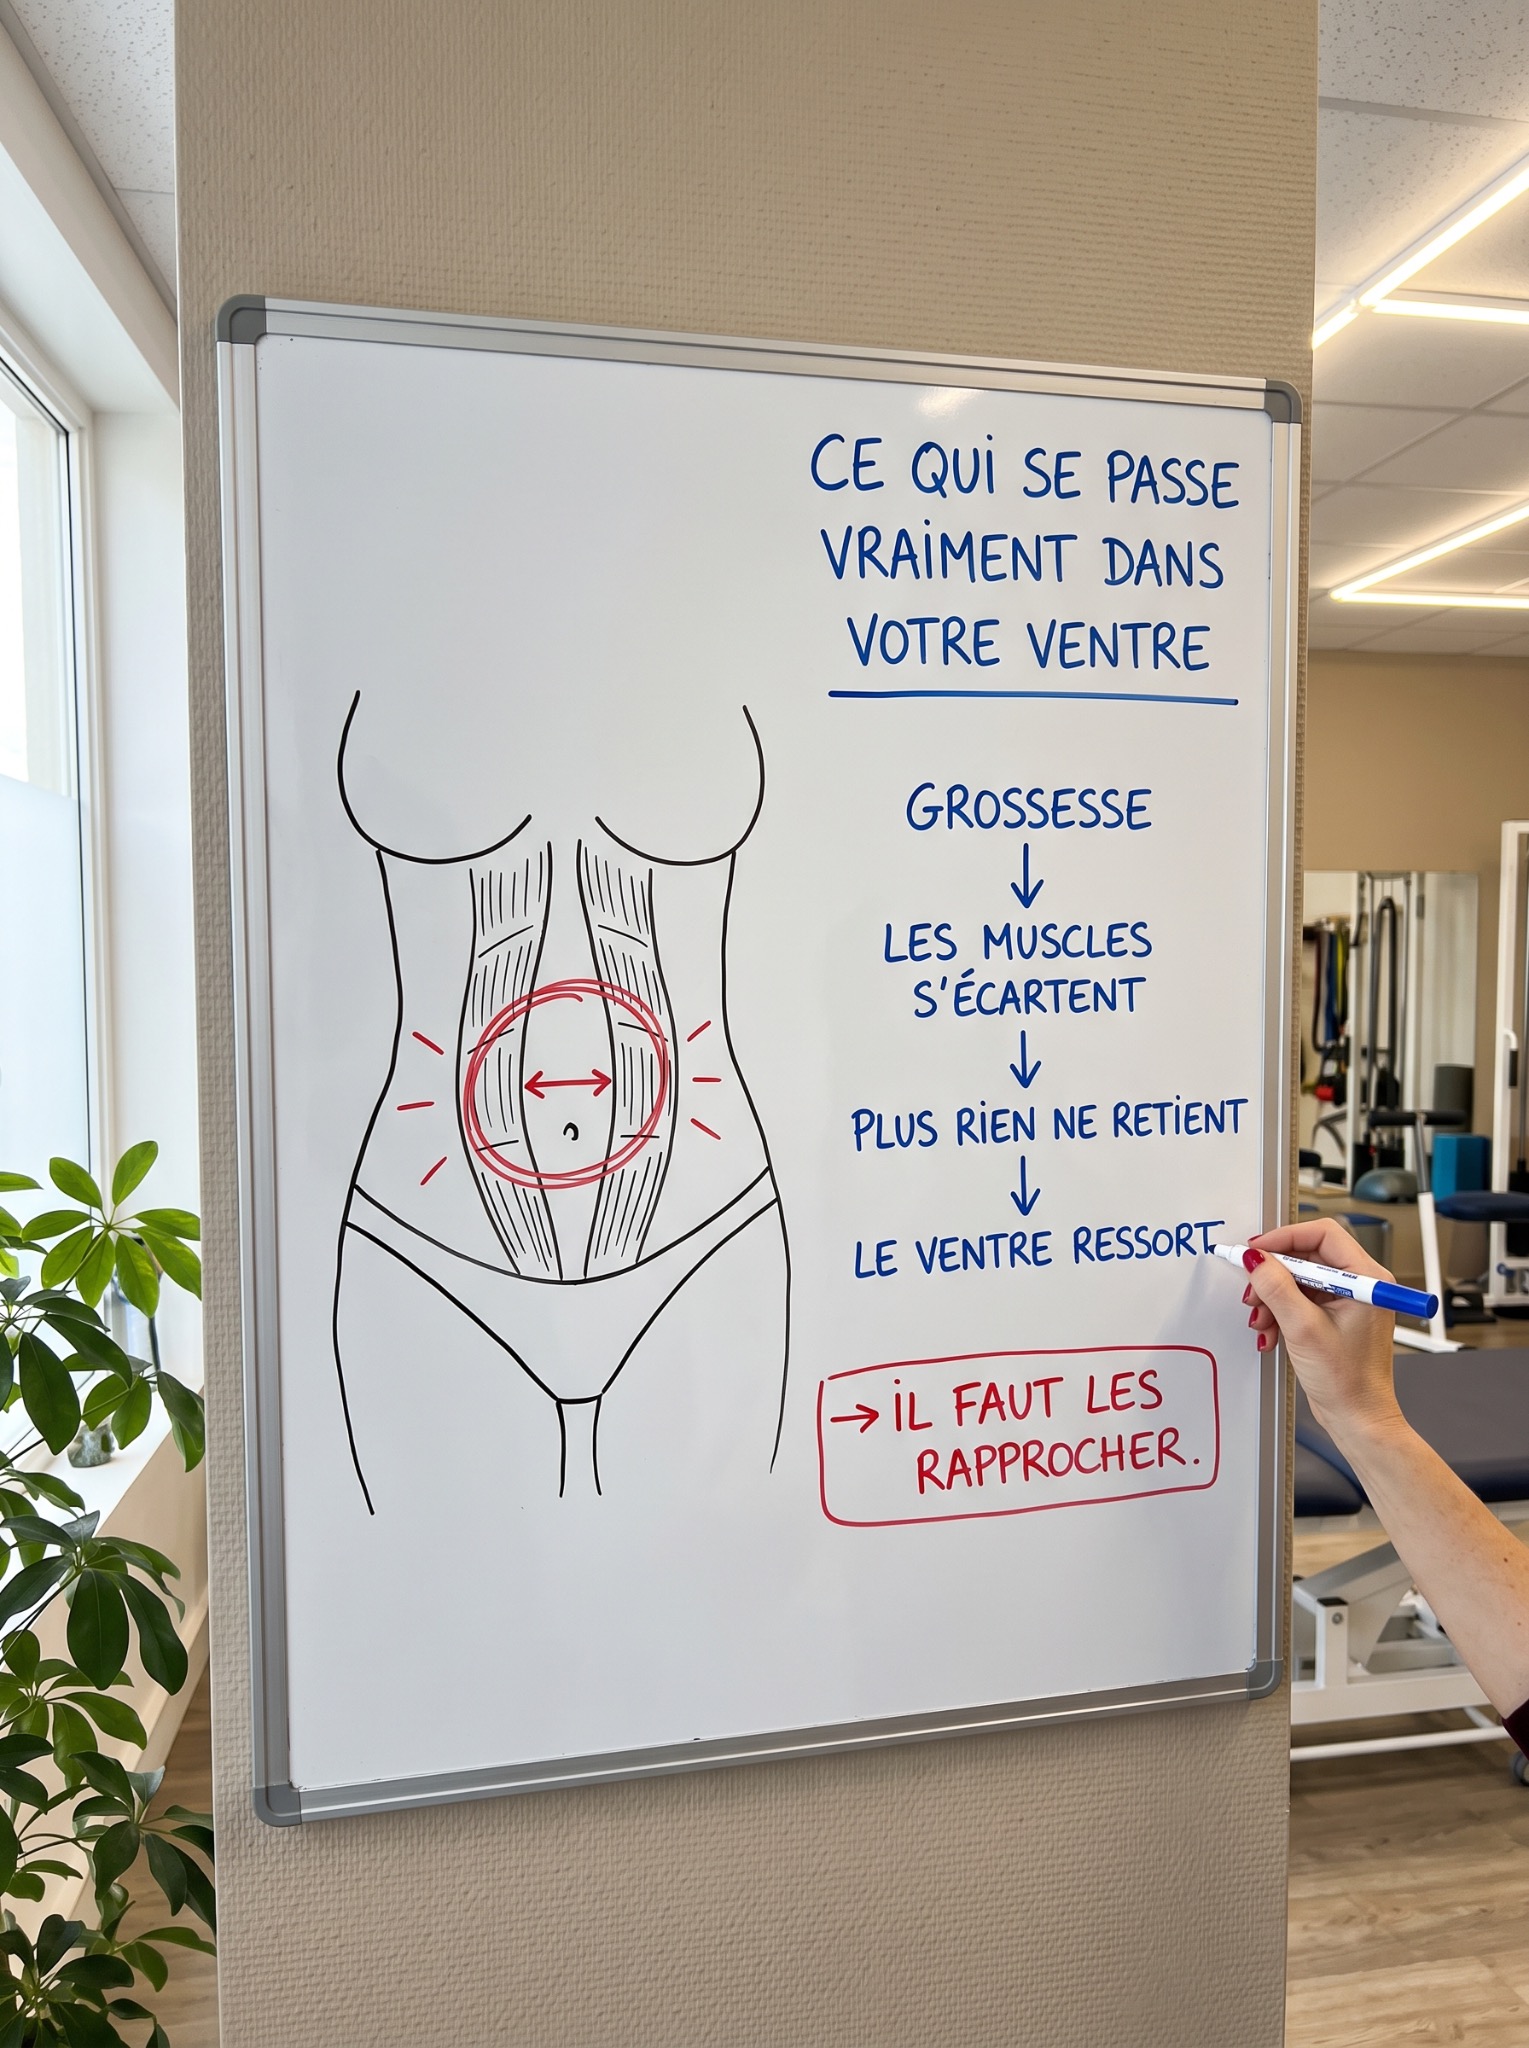 CE QUI SE PASSE
VRAIMENT DANS
VOTRE VENTRE
GROSSESSE
↓
LES MUSCLES
S'ÉCARTENT
↓
PLUS RIEN NE RETIENT
↓
LE VENTRE RESSORT
→ IL FAUT LES
RAPPROCHER.